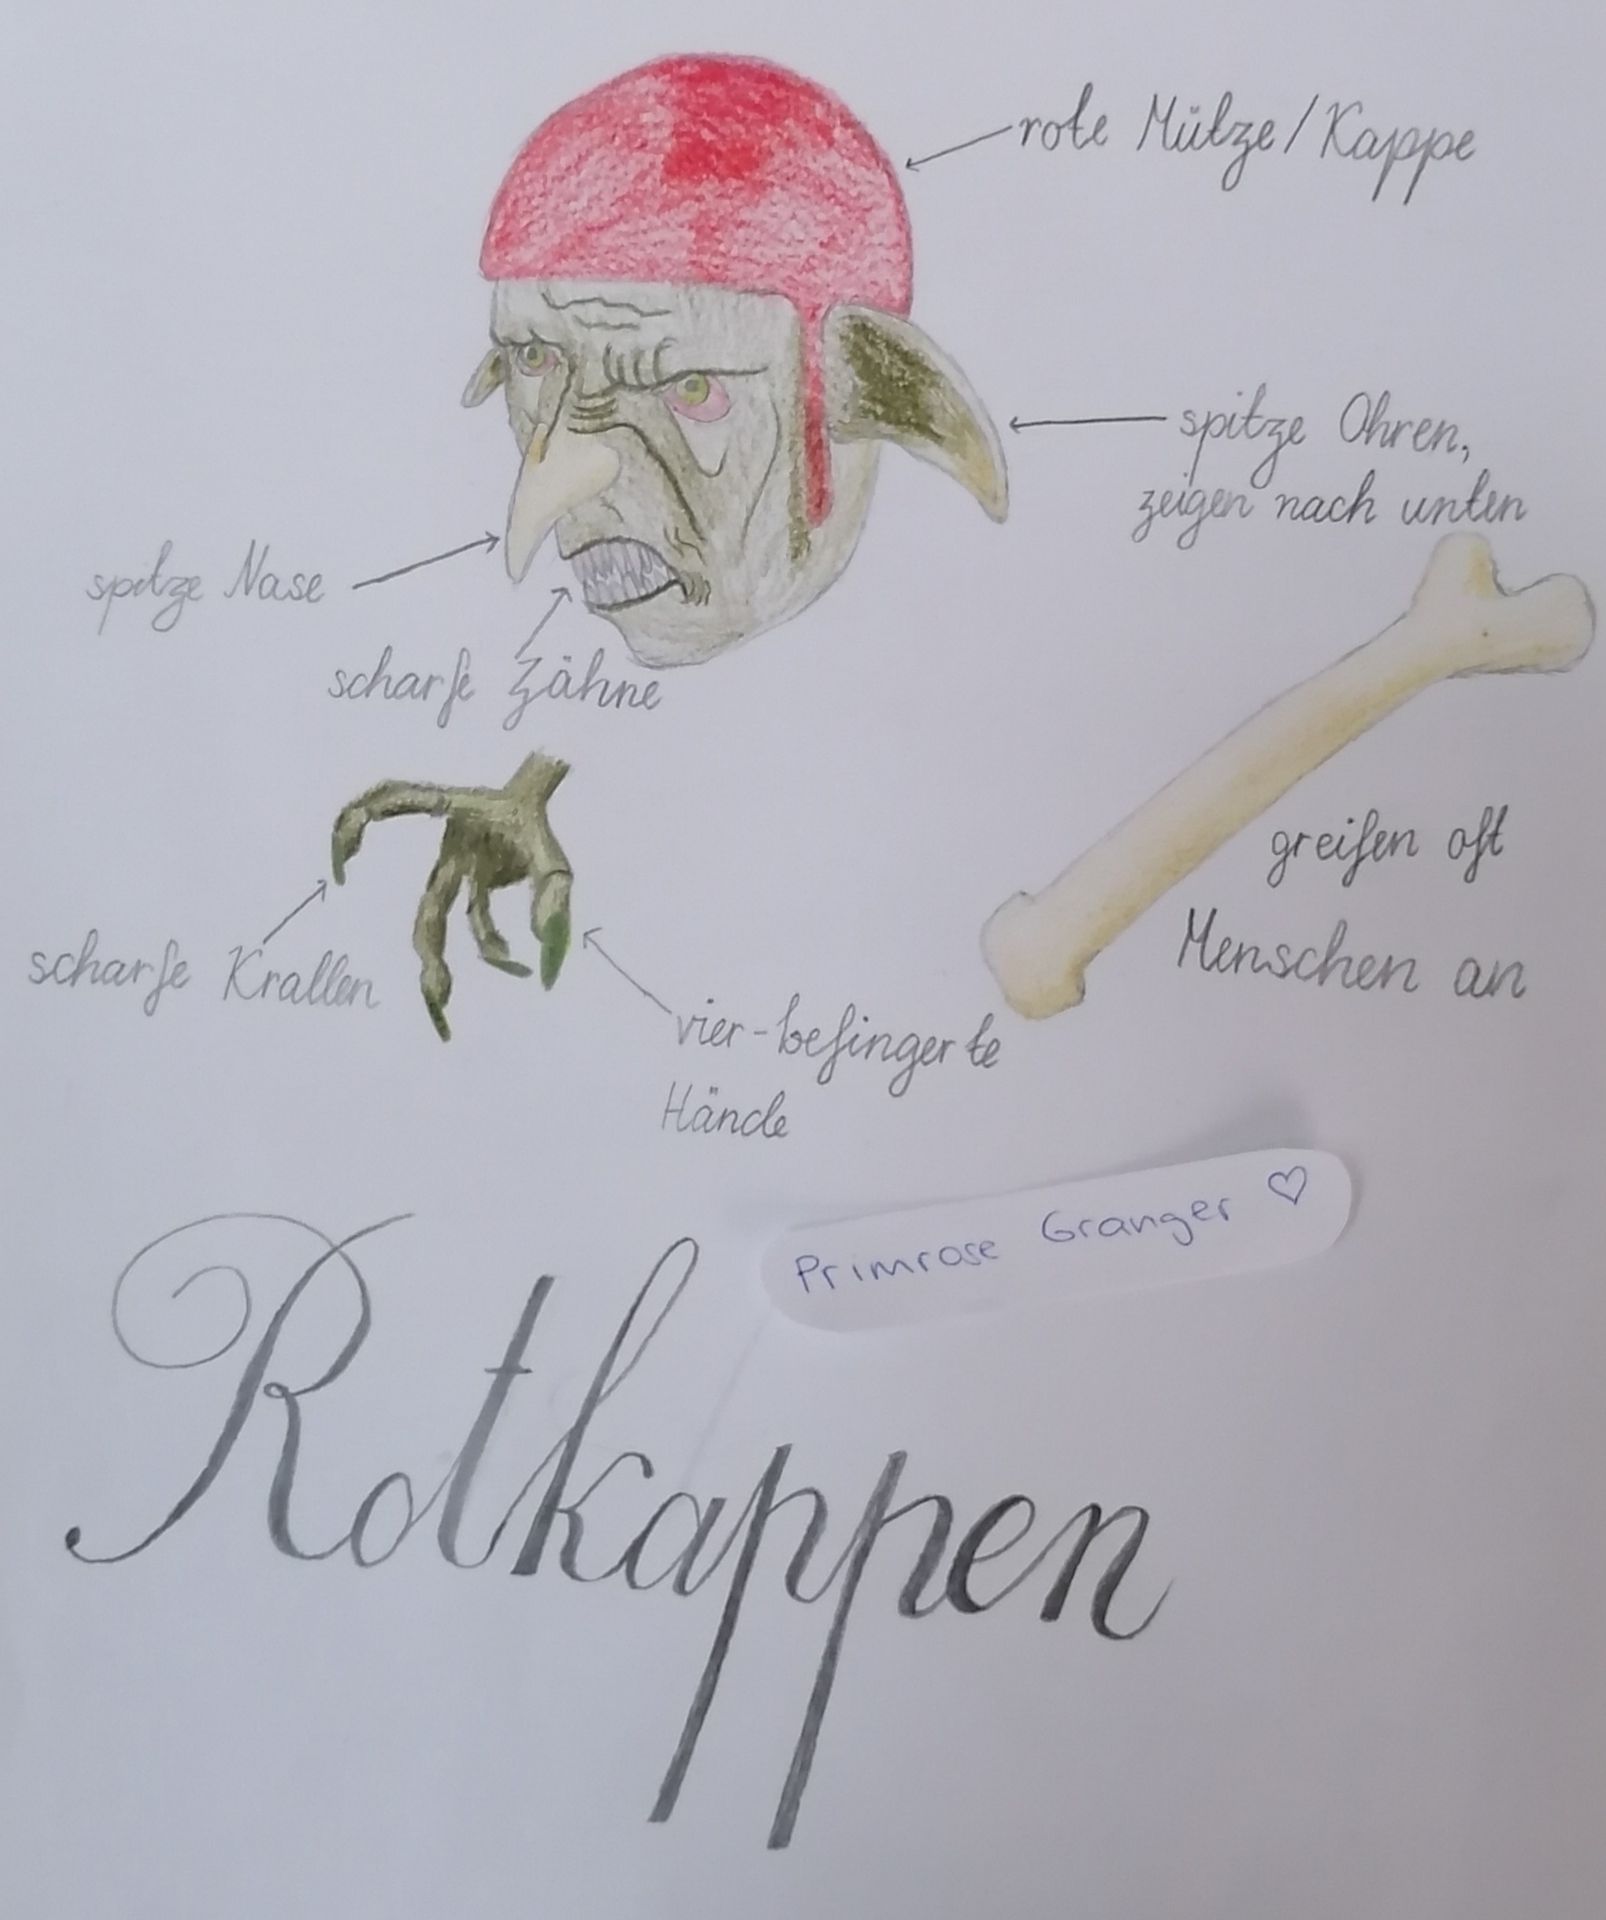 rote Mütze/Kappe
spitze Ohren,
zeigen nach unten
spitze Nase
scharfe Zähne
greifen oft
Menschen an
scharfe Krallen
vier-befingerte
Hände
Primrose Granger ♡
Rotkappen